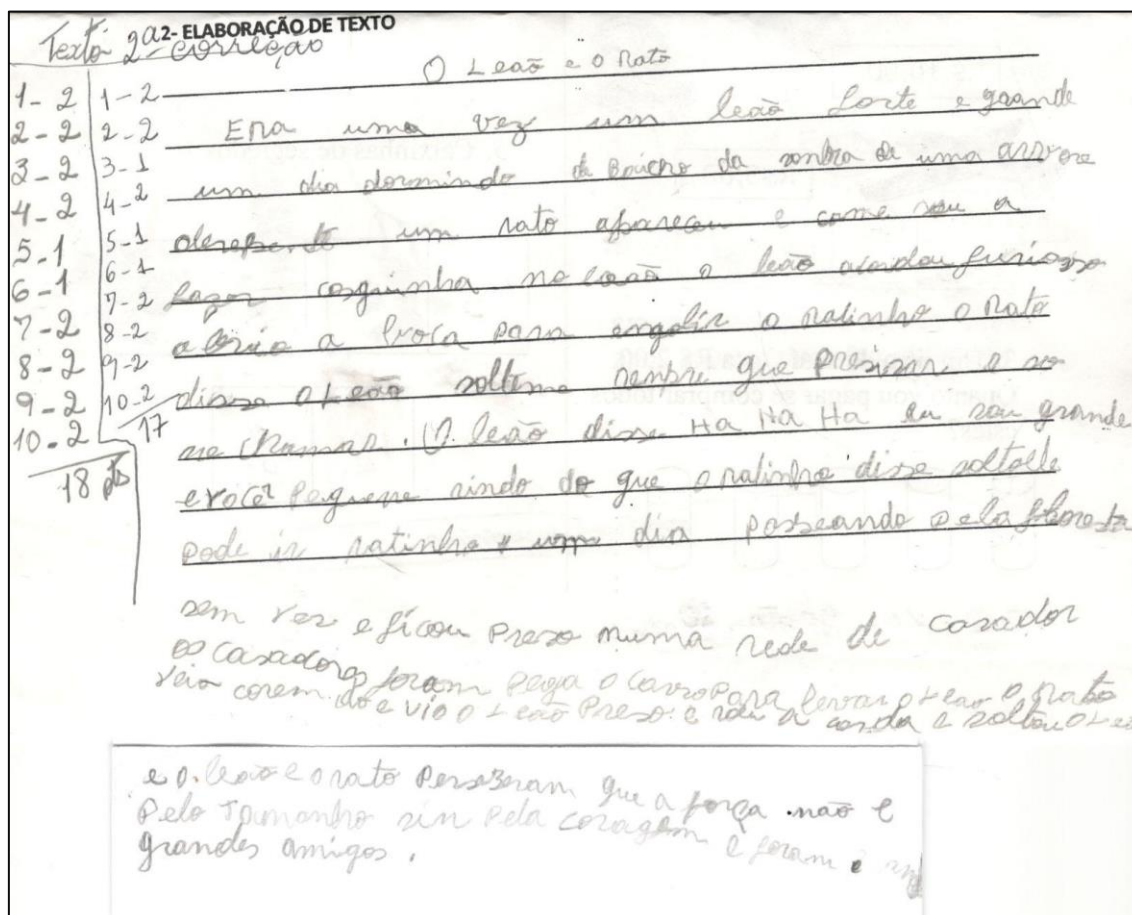 2- ELABORAÇÃO DE TEXTO
Texto 2ª correção
O Leaõ e o Rato
1-2 1-2
2-2 2-2
3-2 3-1
4-2 4-2
5-1 5-1
6-1 6-1
7-2 7-2
8-2 8-2
9-2 9-2
10-2 10-2
18 pts 17
Era uma vez um leaõ forte e grande
um dia dormindo de baicho da sonbra de uma arvore
derepente um rato apareceu e come sou a
fazer cosguinha no leaõ o leaõ acordou furiozo
abriu a boca para engolir o ratinho o Rato
disse o Leaõ soltime senpre que presizar e so
me chamar. O leão disse Ha Ha Ha eu sou grande
e você peguene rindo do que o ratinho disse soltolle
pode ir ratinho um dia passeando pela floresta
sem ver e ficou prezo numa rede de casador
os casadores foram pega o carro para levar o Leao o Rato
veio corem do e vio o Leaõ prezo e roeu a corda e soltou o Leaõ
e o leaõ e o rato perseberam que a força não e
pelo tamanho sin pela coragem e foram
grandes amigos.